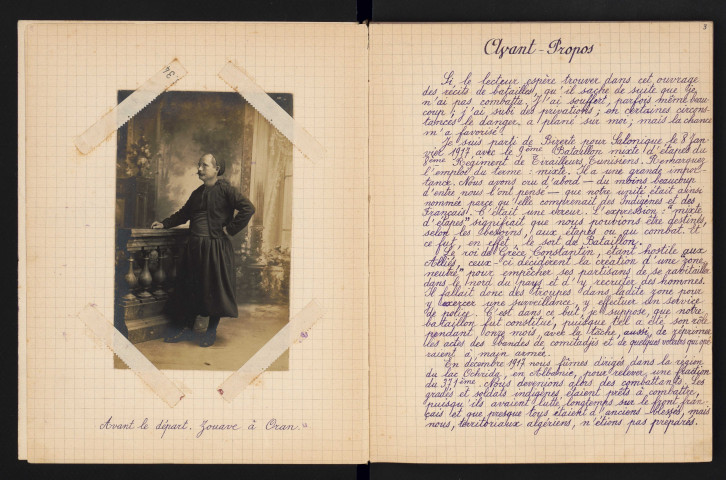 34
Avant le départ. Zouave à Oran.
3
Avant-Propos
Si le lecteur espère trouver dans cet ouvrage
des récits de batailles, qu'il sache de suite que je
n'ai pas combattu. J'ai souffert, parfois même beau-
coup ; j'ai subi des privations ; en certaines circons-
tances le danger a plané sur moi ; mais la chance
m'a favorisé.
Je suis parti de Bizerte pour Salonique le 8 Jan-
vier 1917 avec le 9ème Bataillon mixte d'étapes du
8ème Régiment de Tirailleurs Tunisiens. Remarquez
l'emploi du terme : mixte. Il a une grande impor-
tance. Nous avons cru d'abord — du moins beaucoup
d'entre nous l'ont pensé — que notre unité était ainsi
nommée parce qu'elle comprenait des Indigènes et des
Français. C'était une erreur. L'expression : "mixte
d'étapes" signifiait que nous pouvions être destinés,
selon les besoins, aux étapes ou au combat. Et
ce fut, en effet, le sort du Bataillon.
Le roi de Grèce, Constantin, étant hostile aux
Alliés, ceux-ci décidèrent la création d'une "zone
neutre" pour empêcher ses partisans de se ravitailler
dans le nord du pays et d'y recruter des hommes.
Il fallait donc des troupes dans ladite zone pour
y exercer une surveillance, y effectuer un service
de police. C'est dans ce but, je suppose, que notre
bataillon fut constitué, puisque tel a été son rôle
pendant onze mois, avec la tâche, aussi, de réprimer
les actes des bandes de comitadjis et de quelques voleurs qui opé-
raient à main armée.
En décembre 1917 nous fûmes dirigés dans la région
du lac Ochrida, en Albanie, pour relever une fraction
du 371ème. Nous devenions alors des combattants. Les
gradés et soldats indigènes étaient prêts à combattre,
puisqu'ils avaient lutté longtemps sur le front fran-
çais et que presque tous étaient d'anciens blessés, mais
nous, territoriaux algériens, n'étions pas préparés.